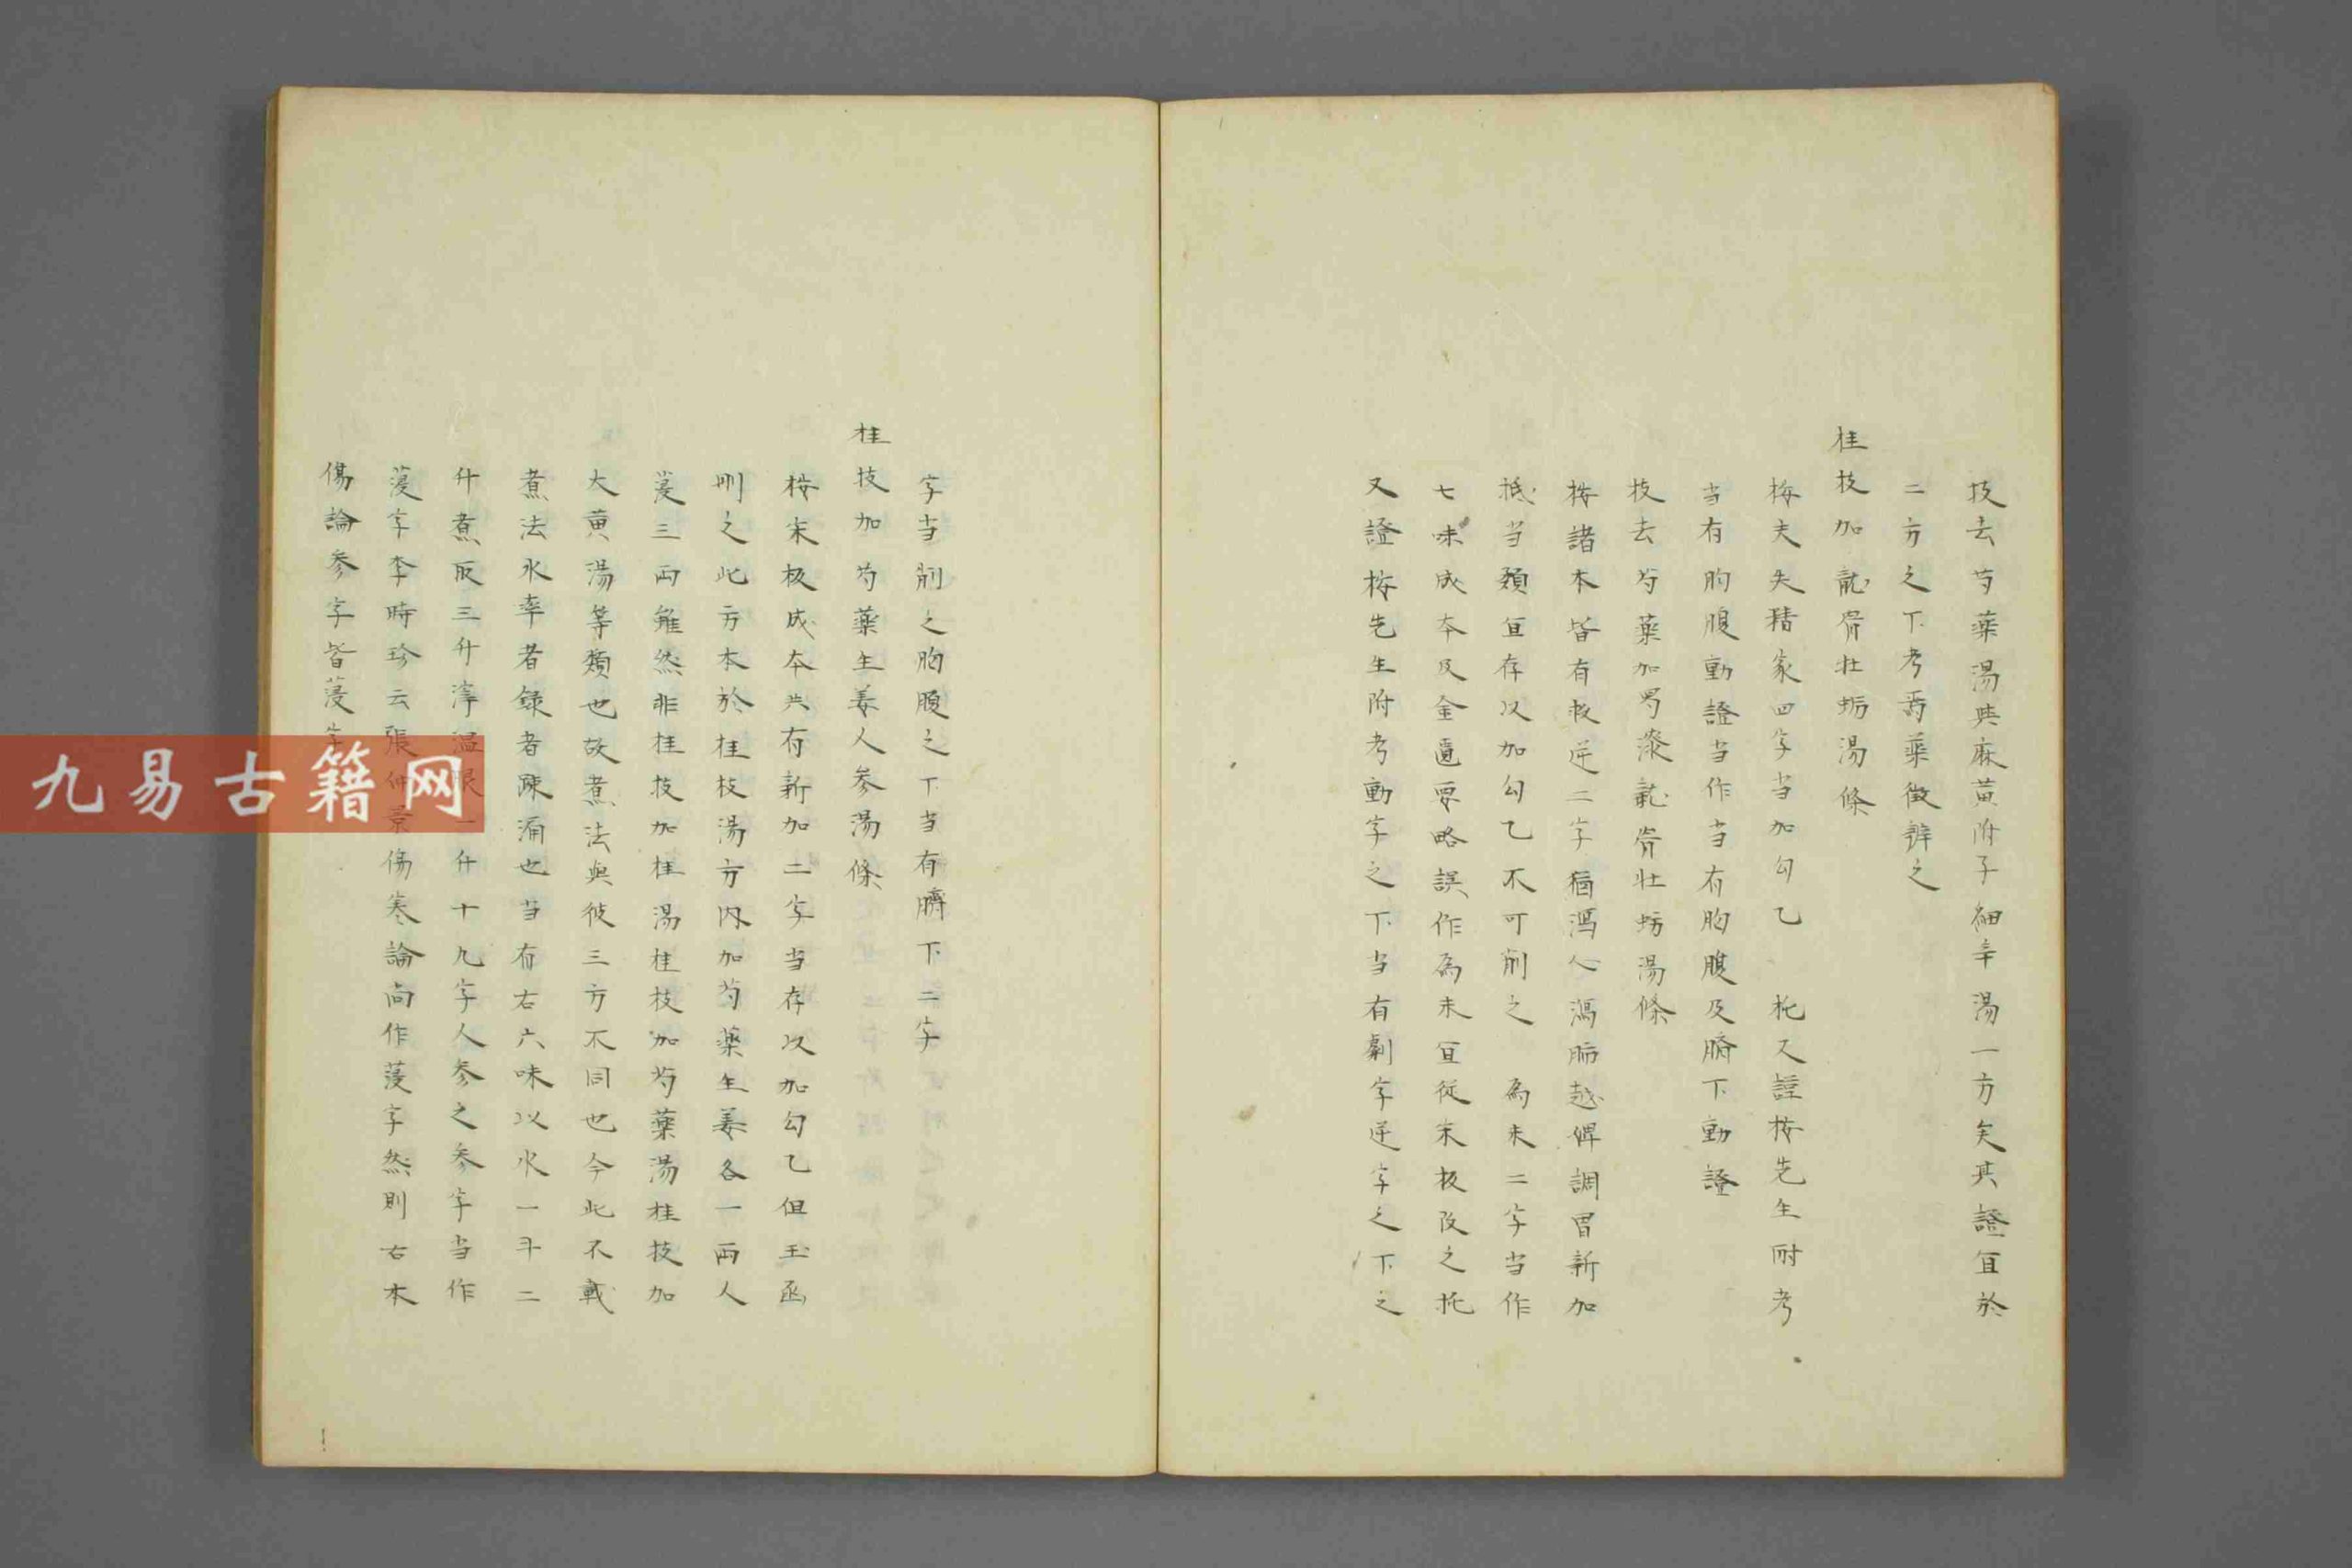 枝去芍藥湯與麻黃附子細辛湯一方矣其證宜於
二方之下考焉藥徵辨之
桂枝加龍骨牡蛎湯條
按夫失精家四字当加勾乙 柁又證按先生附考
当有胸腹動證当作当有胸腹及臍下動證
枝去芍藥加蜀漆龍骨牡蛎湯條
按諸本皆有救逆二字猶瀉心瀉肺越俾調胃新加
抵当類宜存以加勾乙不可削之 為末二字当作
七味成本及金匱要略誤作為末宜從宋板改之柁
又證按先生附考動字之下当有劇字逆字之下之
字当削之胸腹之下当有臍下二字
桂枝加芍藥生姜人参湯條
按宋板成本共有新加二字当存以加勾乙但玉函
刪之此方本於桂枝湯方内加芍藥生姜各一両人
蓡三両雖然非桂枝加桂湯桂枝加芍藥湯桂枝加
大黄湯等類也故煮法與彼三方不同也今此不載
煮法水率者録者疎漏也当有右六味以水一斗二
升煮取三升滓温服一升十九字人参之参字当作
蓡字李時珍云張仲景傷寒論尚作蓡字然則古本
傷論参字皆蓡字
九易古籍网